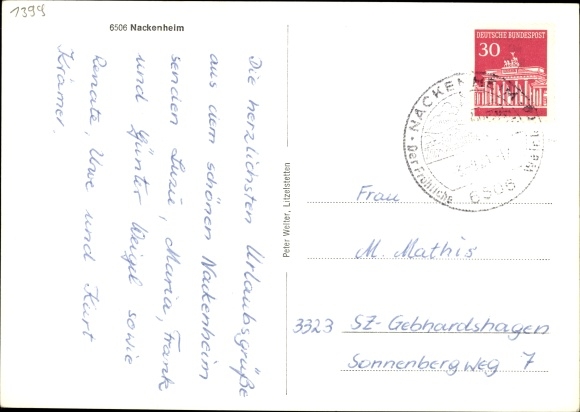 1399
6506 Nackenheim
Die herzlichsten Urlaubsgrüße
aus dem schönen Nackenheim
senden Luzii, Maria, Frank
und Günter Weigel sowie
Renate, Uwe und Kurt
Krämer.
Peter Welter, Litzelstetten
DEUTSCHE BUNDESPOST
30
NACKENHEIM
6506
Der Fröhliche
Frau
M. Mathis
3323 SZ-Gebhardshagen
Sonnenbergweg 7